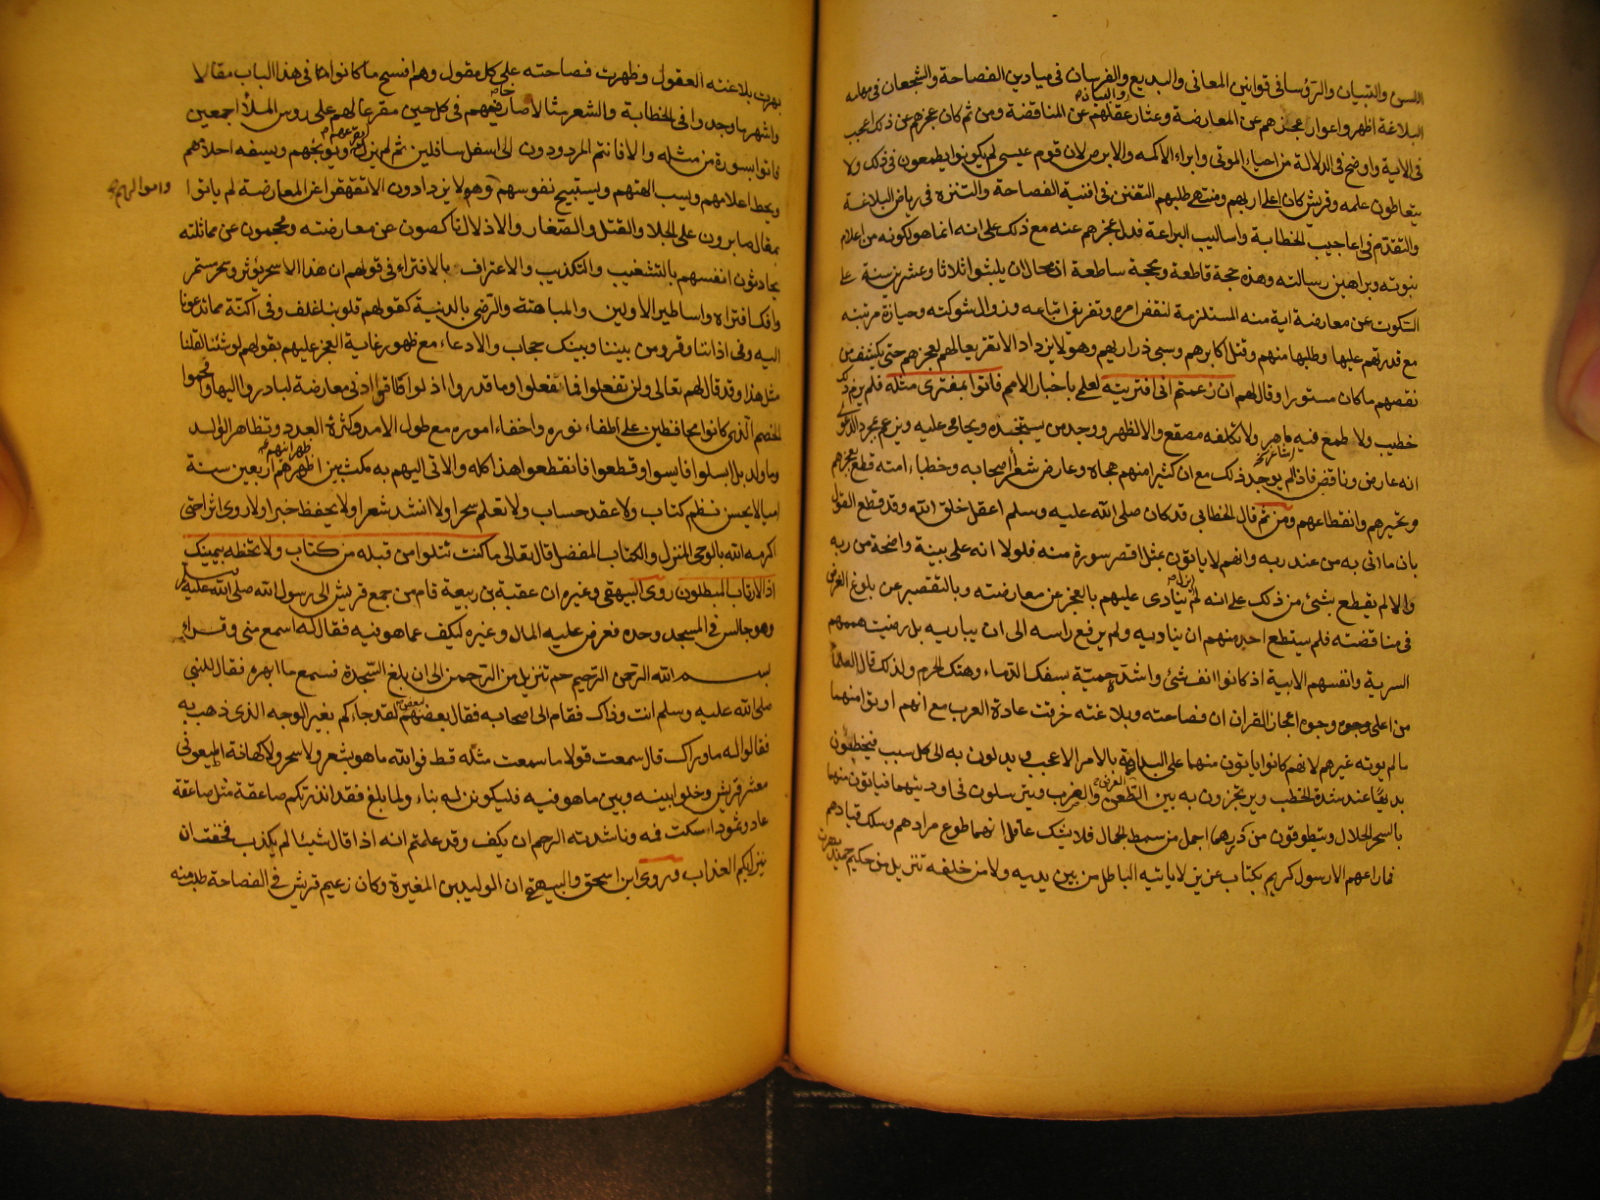 اللسن والتبيان والرؤسا في قوانين المعاني والبديع والفرسان في ميادين الفصاحة والشجعان في مهامه
والبيان
البلاغة اظهر واعوار عجزهم عن المعارضة وعثار عقلهم عن المناقضة ومن ثم كان عجزهم عن ذلك اعجب
في الاية واوضح في الدلالة من احياء الموتى وابراء الاكمه والابرص لان قوم عيسى لم يكونوا يطمعون في ذلك ولا
يتعاطون علمه وقريش كان اعلى اربهم ومنتهى طلبهم التفنن في افنية الفصاحة والتنزه في رياض البلاغة
والتقدم في اعاجيب الخطابة واساليب البراعة فدل عجزهم عنه مع ذلك على انه انما هو لكونه من اعلام
نبوته وبراهين رسالته وهذه حجة قاطعة ومحجة ساطعة اذ محال ان يلبثوا ثلاثا وعشرين سنة على
السكوت عن معارضة اية منه المستلزمة لنقض امره وتفريق اتباعه وزوال شوكته وحيازة مرتبته
مع قدرتهم عليها وطلبها منهم وقتل اكابرهم وسبي ذراريهم وهو لا يزداد الا تقريعا لهم بعجزهم حتى يكشف من
نقصهم ما كان مستورا وقال لهم ان زعمتم اني افتريته لعلمي باخبار الامم فاتوا بمفترى مثله فلم يرم ذلك
خطيب ولا طمع فيه ماهر ولا تكلفه مصقع والا لظهر ووجد من يستجيده ويحامي عليه ويزعم بمجرد الدعوى
انه عارض وناقض فاذا لم يوجد ذلك مع ان كثيرا منهم هجاه وعارض شعراء اصحابه وخطباء امته قطع بعجزهم
وتحيرهم وانقطاعهم ومن ثم قال الخطابي قد كان صلى الله عليه وسلم اعقل خلق الله وقد قطع القول
بان ما اتى به من عند ربه وانهم لا ياتون بمثل اقصر سورة منه فلولا انه على بينة واضحة من ربه
والا لم يقطع بشئ من ذلك على انه لم ينادى عليهم بالعجز عن معارضته وبالتقصير عن بلوغ الغرض
في مناقضته فلم يستطع احد منهم ان يناديه ولم يرفع راسه الى ان يباريه بل رضيت هممهم
السرية وانفسهم الابية اذ كانوا انف شئ واشد حمية بسفك الدماء وهتك الحرم ولذلك قال العلماء
من اعلى وجوه وجوه اعجاز القران ان فصاحته وبلاغته خرقت عادة العرب مع انهم اوتوا منهما
ما لم يوته غيرهم لانهم كانوا ياتون منهما على البداهة بالامر الاعجب ويدلون به الى كل سبب فيخطبون
بديها عند شدة الخطب ويرتجزون به بين الطعن والضرب ويترسلون في اوديتهما فياتون منهما
بالسحر الحلال ويطوقون من دررهما اجمل من سمط الجمال فلا يشك عاقل انهما طوع مرادهم وسلك قيادهم
فما راعهم الا رسول كريم بكتاب عزيز لا ياتيه الباطل من بين يديه ولا من خلفه تنزيل من حكيم حميد بهرت
بهرت بلاغته العقول وظهرت فصاحته على كل مقول وهم افسح ما كانوا في هذا الباب مقالا
واشهر ما وجدوا في الخطابة والشعر سجالا صارخ بهم في كل حين مقرعا لهم على روس الملأ اجمعين
فاتوا بسورة من مثله والا فانتم المردودون الى اسفل سافلين ثم لم يزل يقرعهم ويوبخهم ويسفه احلامهم
ويحط اعلامهم ويسب الهتهم ويستبيح نفوسهم وهو لا يزدادون الا تقهقرا عن المعارضة لم ياتوا
واموالهم صح
بمقال صابرون على الجلا والقتل والصغار والاذلال ناكصون عن معارضته ومحجمون عن مماثلته
يخادعون انفسهم بالتشغيب والتكذيب والاعتراف بالافتراء في قولهم ان هذا الا سحر يؤثر وسحر مستمر
وافك افتراه واساطير الاولين والمباهتة والرضى بالدنية كقولهم قلوبنا غلف وفي اكنة مما تدعونا
اليه وفي اذاننا وقر ومن بيننا وبينك حجاب والادعاء مع ظهور غاية العجز عليهم بقولهم لو شئنا لقلنا
مثل هذا وقد قال لهم تعالى ولن تفعلوا فما فعلوا وما قدروا اذ لو اطاقوا ادنى معارضة لبادروا اليها وافحموا
الخصم الذي كانوا محافظين على اطفاء نوره واخفاء اموره مع طول الامد وكثرة العدد وتظاهر الوالد
وما ولد بل ابلسوا فايسوا وقطعوا فانقطعوا هذا كله والاتي اليهم به مكث بين اظهرهم اربعين سنة
اميا لا يحسن نظم كتاب ولا عقد حساب ولا تعلم سحرا ولا انشد شعرا ولا يحفظ خبرا ولا روى اثرا حتى
اكرمه الله بالوحي المنزل والكتاب المفضل قال تعالى ما كنت تتلوا من قبله من كتاب ولا تخطه بيمينك
اذا لارتاب المبطلون روى البيهقي وغيره ان عقبة بن ربيعة قام من جمع قريش الى رسول الله صلى الله عليه وسلم
وهو جالس في المسجد وحده فعرض عليه المال وغيره ليكف عما هو فيه فقال له اسمع مني وقراء
بسم الله الرحمن الرحيم حم تنزيل من الرحمن الى ان بلغ السجدة فسمع ما ابهره فقال للنبي
صلى الله عليه وسلم انت وذاك فقام الى اصحابه فقال بعضهم لقد جاءكم بغير الوجه الذي ذهب به
فقالوا له ما وراك قال سمعت قولا ما سمعت مثله قط فوالله ما هو بشعر ولا سحر ولا كهانة اطيعوني
معشر قريش وخلوا بينه وبين ما هو فيه فليكونن له بناء ولما بلغ فقد انذرتكم صاعقة مثل صاعقة
عاد وثمود امسكت فمه وناشدته الرحم ان يكف وقد علمتم انه اذا قال شيئا لم يكذب فخفت ان
ينزل بكم العذاب وروى ابن اسحق والبيهقي ان الوليد بن المغيرة وكان زعيم قريش في الفصاحة طلب منه